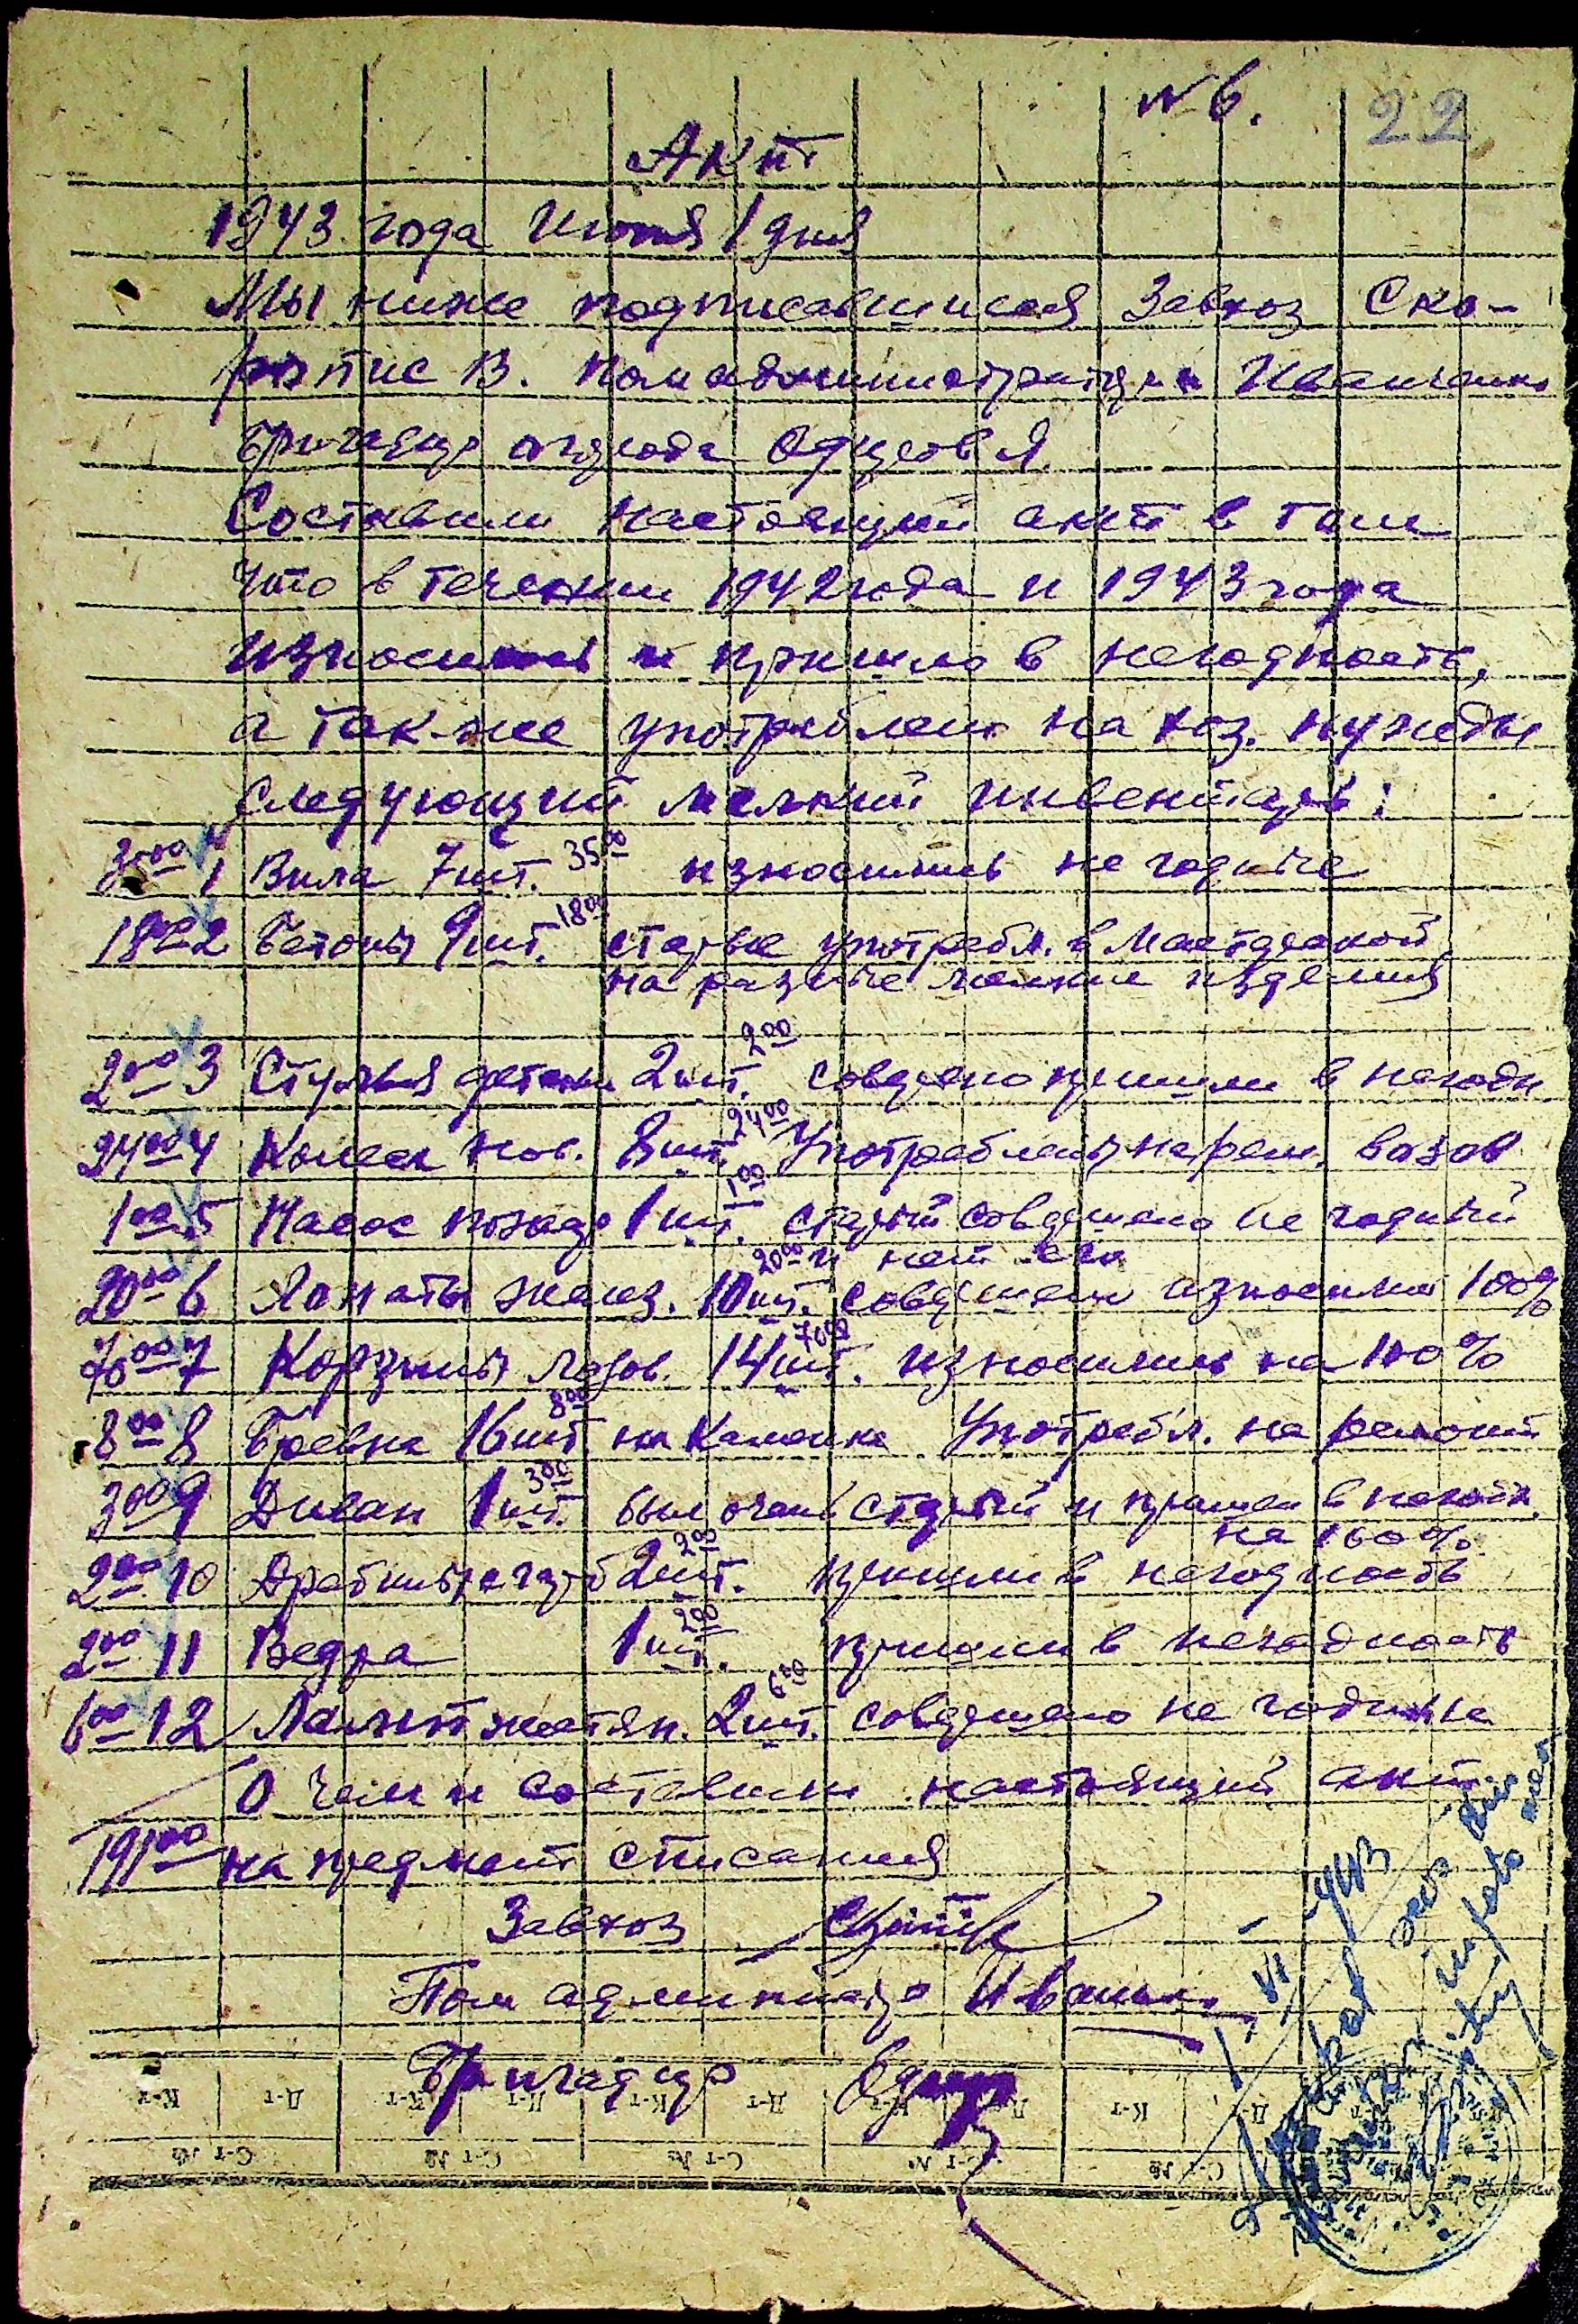 № 6.
22
Акт
1943 года Июня 1 дня
Мы ниже подписавшиеся Завхоз Ско-
В. пом администратора
огорода Одуцов Я.
Составили настоящий акт в том
что в течении 1942 года и 1943 года
износилось и пришло в негодность,
а так-же употреблено на хоз. нужды
следующий мелкий инвентарь:
35 00 1 Вила 7 шт. 35 00 износились не годные
18 00 2 Бетоны 9 шт. 18 00 старые употребл. в Мастерской
на разные мелкие изделия
2 00 3 Стулья детски 2 шт. 2 00 совершено пришли в негодн
24 00 4 Колеса нов. 8 шт. 24 00 Употреблены на рем. возов
1 00 5 Насос пожар 1 шт. 1 00 старый совершено не годный
и нет его
20 00 6 Лопаты желез. 10 шт. 20 00 совершено износились 100%
70 00 7 Корзины лозов. 14 шт. 70 00 износились на 100%
8 00 8 Бревна 16 шт. 8 00 на Каменке Употребл. на ремонт
3 00 9 Диван 1 шт. 3 00 был очень старый и пришел в негодн.
на 100%
2 00 10 2 шт. 2 00 пришли в негодность
2 00 11 Ведра 1 шт. 2 00 пришли в негодность
6 00 12 Лампы жестян. 2 шт. 6 00 совершено не годные
О чем и составили настоящий акт
191 00 на предмет списания
Завхоз
Пом администра
Бригадир
1-VI-1943
К-т Д-т К-т Д-т К-т Д-т К-т Д-т К-т Д-т
С-т № С-т № С-т № С-т № С-т №